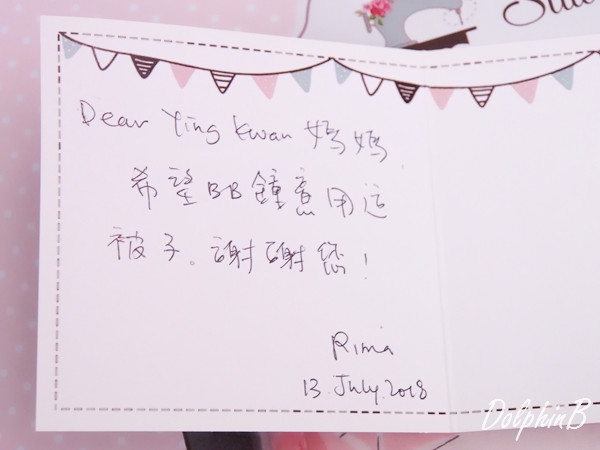 Dear Ying Kwan 媽媽
希望BB鐘意用這
被子。謝謝您!
Rima
13. July. 2018
DolphinB